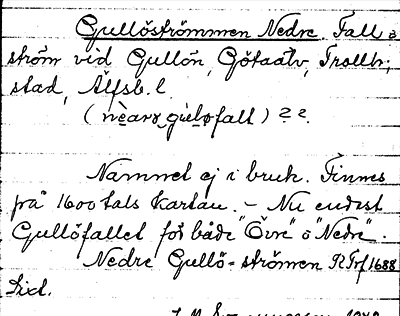 Gullöströmmen Nedre. Fall o
ström vid Gullön, Götaälv, Trollh.
stad, Älfsb. l.
fall) 2 2.
Namnet ej i bruk. Finnes
på 1600 tals kartan. - Nu endast
Gullöfallet för både "Övre" o "Nedre".
Nedre Gullö-strömen 1688